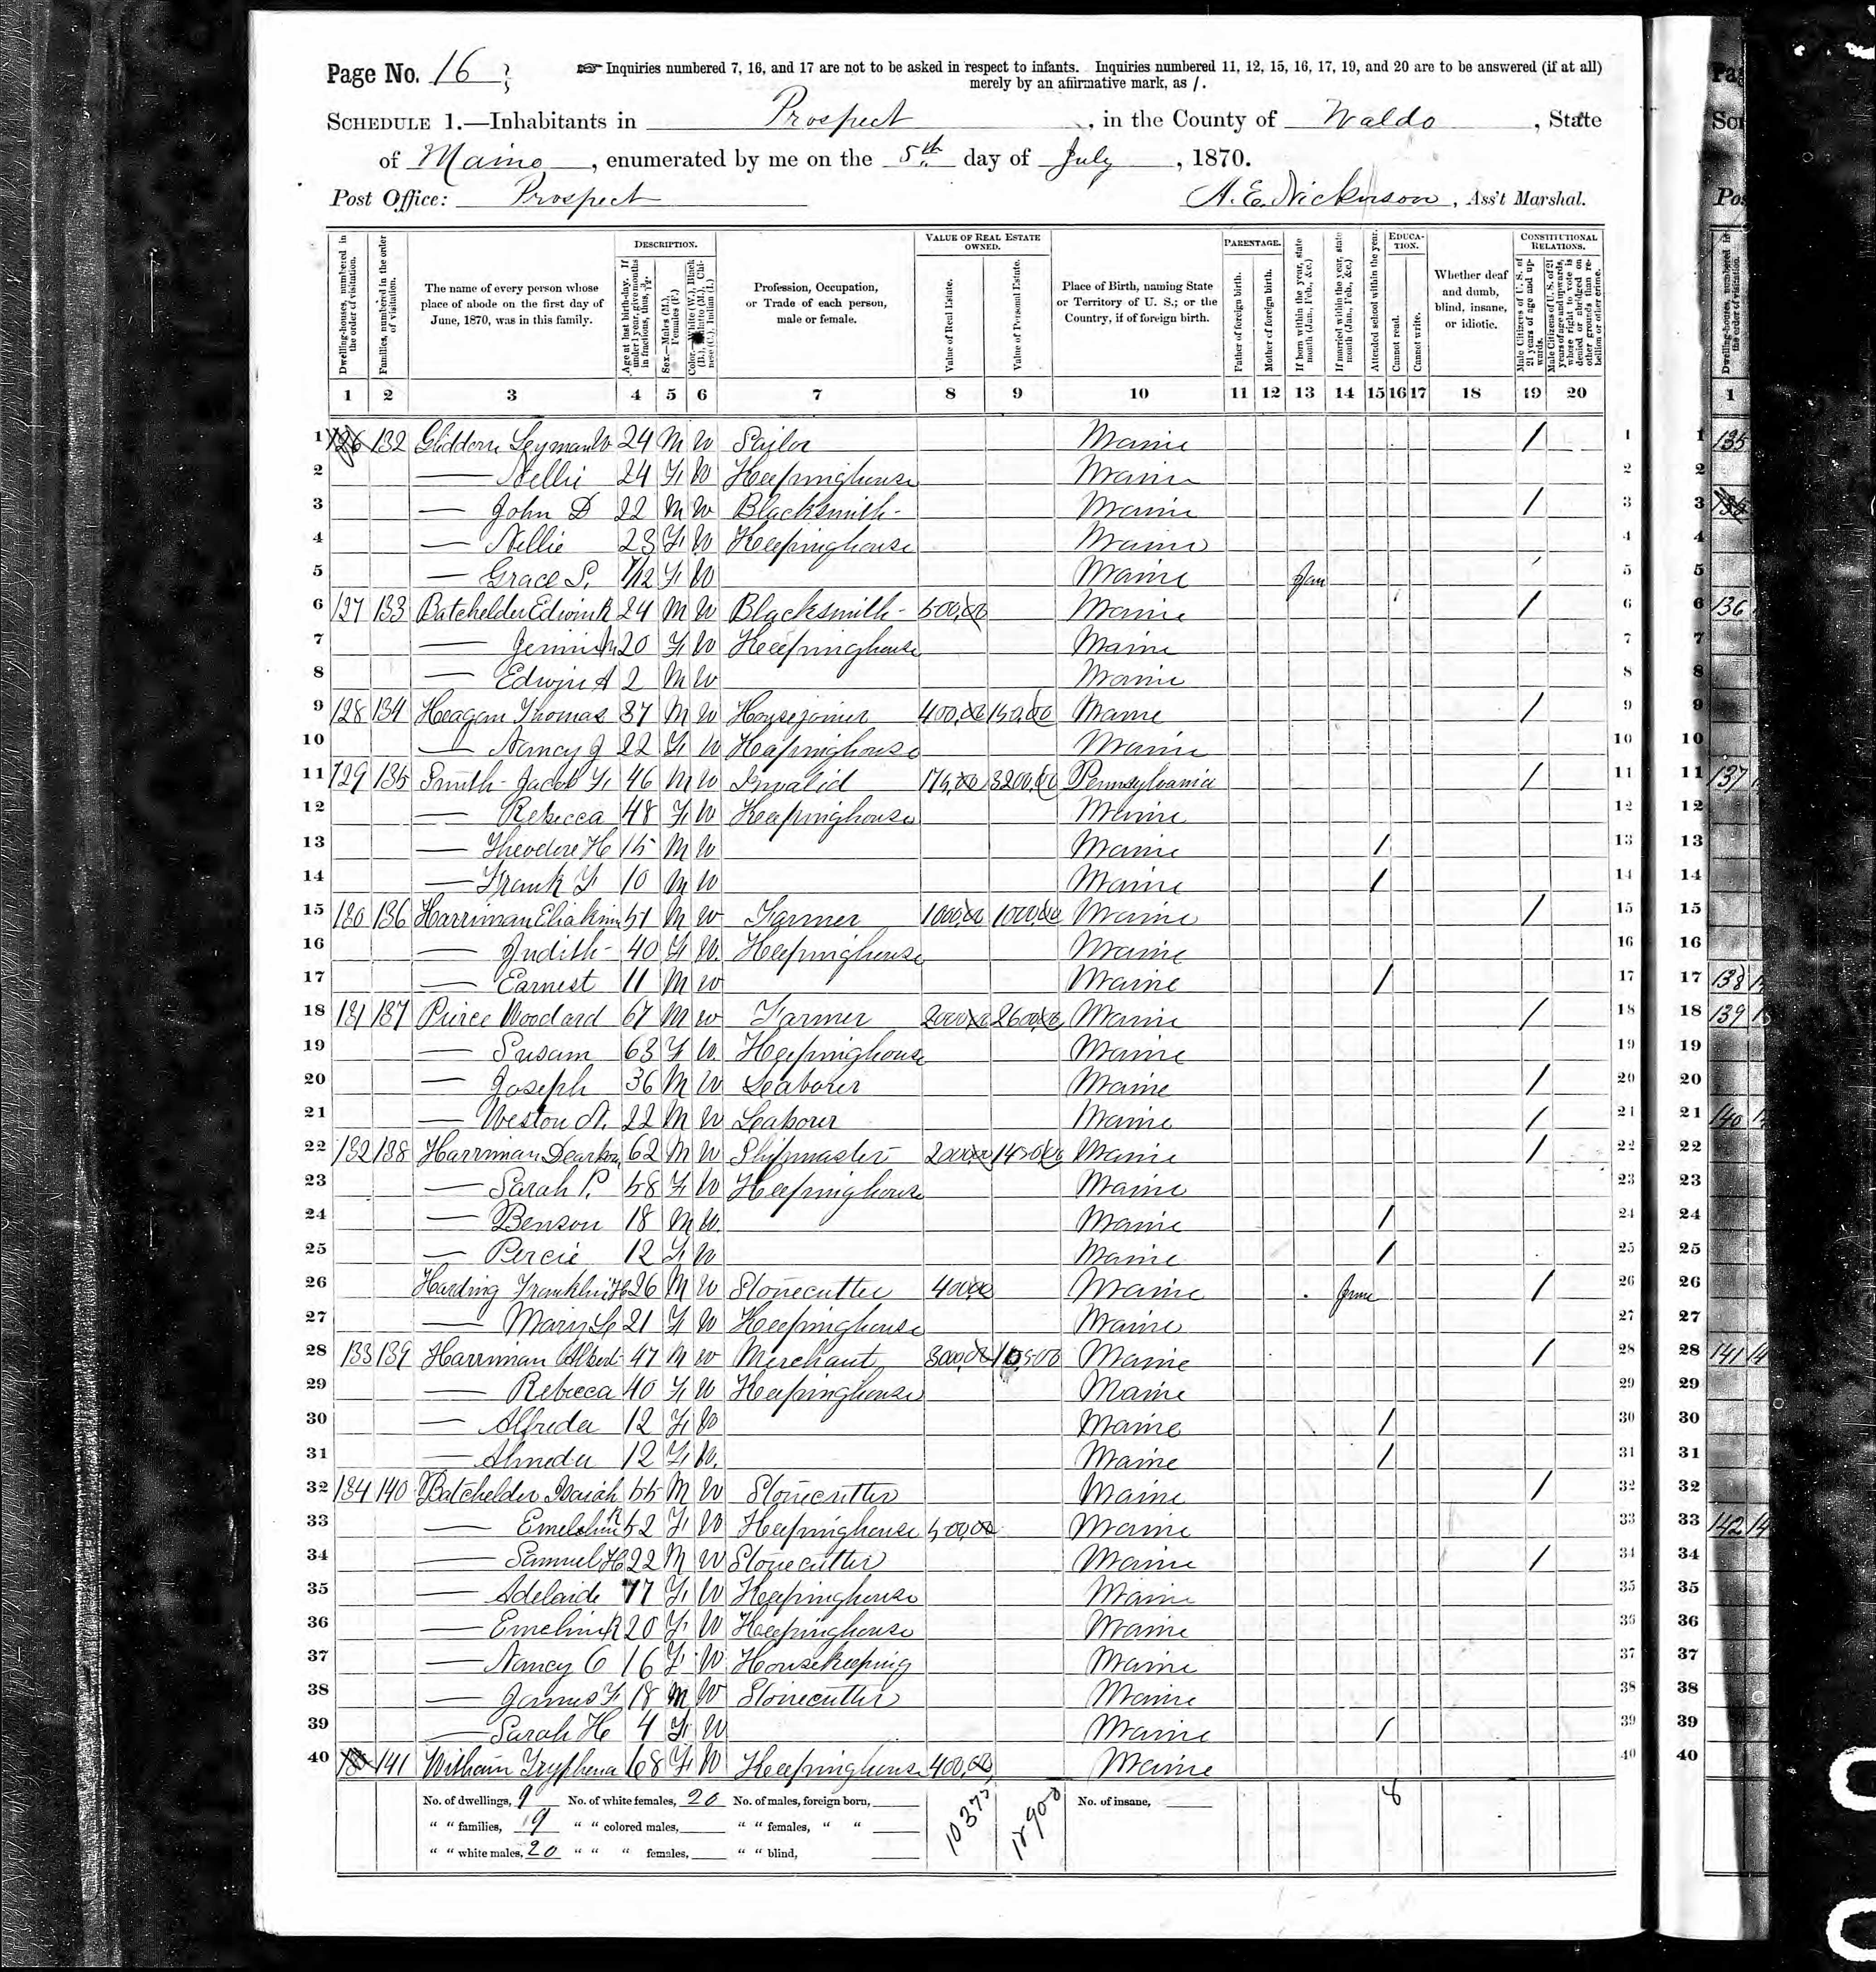 Page No. 16
Inquiries numbered 7, 16, and 17 are not to be asked in respect to infants. Inquiries numbered 11, 12, 15, 16, 17, 19, and 20 are to be answered (if at all)
merely by an affirmative mark, as /.
SCHEDULE 1.—Inhabitants in Prospect, in the County of Waldo, State
of Maine, enumerated by me on the 5th day of July, 1870.
Post Office: Prospect A. E. Nickerson, Ass't Marshal.
Dwelling-houses, numbered in the order of visitation.
Families, numbered in the order of visitation.
The name of every person whose place of abode on the first day of June, 1870, was in this family.
DESCRIPTION.
Age at last birth-day. If under 1 year, give months in fractions, thus, 3/12.
Sex.—Males (M.), Females (F.)
Color.—White (W.), Black (B.), Mulatto (M.), Chinese (C.), Indian (I.)
Profession, Occupation, or Trade of each person, male or female.
VALUE OF REAL ESTATE OWNED.
Value of Real Estate.
Value of Personal Estate.
Place of Birth, naming State or Territory of U. S.; or the Country, if of foreign birth.
PARENTAGE.
Father of foreign birth.
Mother of foreign birth.
If born within the year, state month (Jan., Feb., &c.)
If married within the year, state month (Jan., Feb., &c.)
Attended school within the year.
EDUCATION.
Cannot read.
Cannot write.
Whether deaf and dumb, blind, insane, or idiotic.
CONSTITUTIONAL RELATIONS.
Male Citizens of U. S. of 21 years of age and upwards.
Male Citizens of U. S. of 21 years of age and upwards, whose right to vote is denied or abridged on other grounds than rebellion or other crime.
1 2 3 4 5 6 7 8 9 10 11 12 13 14 15 16 17 18 19 20
1 126 132 Gliddon Lyman W 24 M W Sailor Maine / 1
2 — Nellie 24 F W Keepinghouse Maine 2
3 — John D 22 M W Blacksmith Maine / 3
4 — Nellie 23 F W Keepinghouse Maine 4
5 — Grace L. 7/12 F W Maine Jan 5
6 127 133 Batchelder Edwin R 24 M W Blacksmith 500,00 Maine / 6
7 — Jennie 20 F W Keepinghouse Maine 7
8 — Edwin A 2 M W Maine 8
9 128 134 Heagan Thomas 37 M W Housejoiner 400,00 150,00 Maine / 9
10 — Nancy J 22 F W Keepinghouse Maine 10
11 129 135 Smith Jacob F 46 M W Invalid 175,00 3200,00 Pennsylvania / 11
12 — Rebecca 48 F W Keepinghouse Maine 12
13 — Theodore H 15 M W Maine / 13
14 — Frank F 10 M W Maine / 14
15 130 136 Harriman Eliakim 51 M W Farmer 1000,00 1000,00 Maine / 15
16 — Judith 40 F W. Keepinghouse Maine 16
17 — Earnest 11 M W Maine / 17
18 131 137 Pierce Woodard 67 M W Farmer 2000,00 2600,00 Maine / 18
19 — Susam 63 F W. Keepinghouse Maine 19
20 — Joseph 36 M W Leaborer Maine / 20
21 — Weston A. 22 M W Leaborer Maine / 21
22 132 138 Harriman Dearborn 62 M W Shipmaster 2000,00 1450,00 Maine / 22
23 — Sarah P. 58 F W Keepinghouse Maine 23
24 — Benson 18 M W. Maine / 24
25 — Percie 12 F W Maine / 25
26 Harding Franklin H 26 M W Stonecutter 400,00 Maine June / 26
27 — Mary L 21 F W Keepinghouse Maine 27
28 133 139 Harriman Albert 47 M W Merchant 3000,00 10,500 Maine / 28
29 — Rebecca 40 F W Keepinghouse Maine 29
30 — Alfreda 12 F W Maine / 30
31 — Almeda 12 F W. Maine / 31
32 134 140 Batchelder Isaiah 55 M W Stonecutter Maine / 32
33 — Emeline 52 F W Keepinghouse 500,00 Maine 33
34 — Samuel H 22 M W Stonecutter Maine / 34
35 — Adelaide 17 F W Keepinghouse Maine 35
36 — Emelin R 20 F W Keepinghouse Maine 36
37 — Nancy C 16 F W Housekeeping Maine 37
38 — James F 18 M W Stonecutter Maine 38
39 — Sarah H 4 F W Maine / 39
40 141 Witham Tryphena 68 F W Keepinghouse 400,00 Maine 40
No. of dwellings, 9 No. of white females, 20 No. of males, foreign born, No. of insane, 8
" " families, 9 " " colored males, " " females, " "
" " white males, 20 " " " females, " " blind,